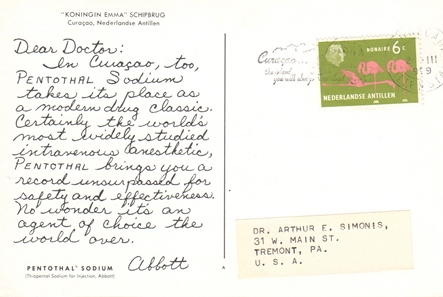 "KONINGIN EMMA" SCHIPBRUG
Curaçao, Nederlandse Antillen
Dear Doctor:
In Curaçao, too,
PENTOTHAL Sodium
takes its place as
a modern drug classic.
Certainly the world's
most widely studied
intravenous anesthetic,
PENTOTHAL brings you a
record unsurpassed for
safety and effectiveness.
No wonder it's an
agent of choice the
world over.
Abbott
PENTOTHAL® SODIUM
(Thiopental Sodium for Injection, Abbott)
Curaçao...
you will always
BONAIRE 6 C
NEDERLANDSE ANTILLEN
III
DR. ARTHUR E. SIMONIS,
31 W. MAIN ST.
TREMONT, PA.
U. S. A.